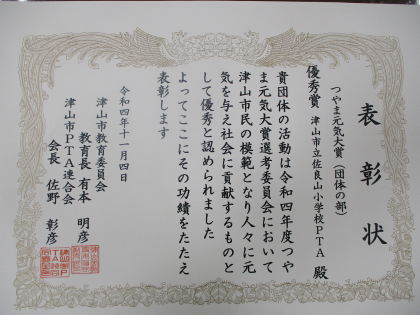 表彰状
つやま元気大賞(団体の部)
優秀賞 津山市立佐良山小学校PTA 殿
貴団体の活動は令和四年度つや
ま元気大賞選考委員会において
津山市民の模範となり人々に元
気を与え社会に貢献するものと
して優秀と認められました
よってここにその功績をたたえ
表彰します
令和四年十一月四日
津山市教育委員会
教育長 有本 明彦
津山市PTA連合会
会長 佐野 彰彦